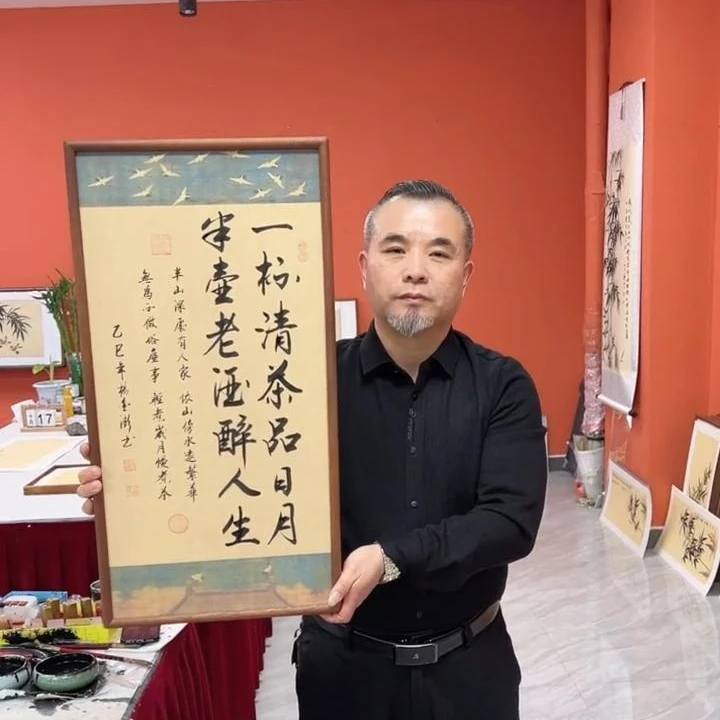 一杯清茶品日月
半壶老酒醉人生
半山深处有人家 依山傍水远繁华
无为不做俗尘事 轻煮岁月慢煮茶
乙巳年杨
17